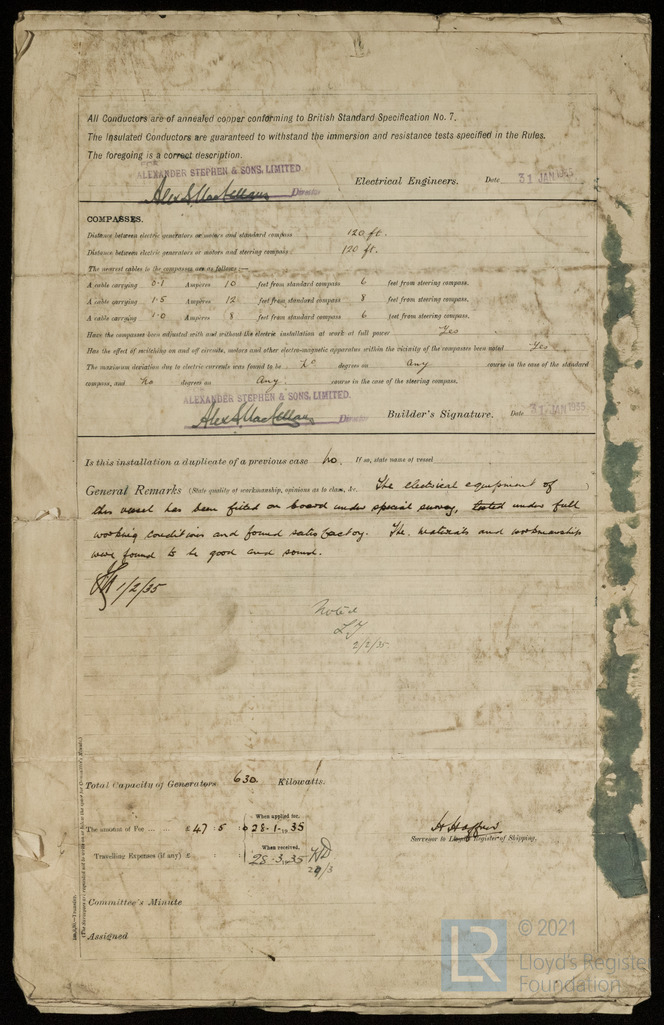 All Conductors are of annealed copper conforming to British Standard Specification No. 7.
The Insulated Conductors are guaranteed to withstand the immersion and resistance tests specified in the Rules.
The foregoing is a correct description.
ALEXANDER STEPHEN & SONS, LIMITED.
Alex S MacLellan Director Electrical Engineers. Date 31 JAN 1935
COMPASSES.
Distance between electric generators or motors and standard compass 120 ft.
Distance between electric generators or motors and steering compass 120 ft.
The nearest cables to the compasses are as follows:—
A cable carrying 0.1 Amperes 10 feet from standard compass 6 feet from steering compass.
A cable carrying 1.5 Amperes 12 feet from standard compass 8 feet from steering compass.
A cable carrying 1.0 Amperes 8 feet from standard compass 6 feet from steering compass.
Have the compasses been adjusted with and without the electric installation at work at full power Yes
Has the effect of switching on and off circuits, motors and other electro-magnetic apparatus within the vicinity of the compasses been noted Yes
The maximum deviation due to electric currents was found to be No degrees on Any course in the case of the standard
compass, and No degrees on Any course in the case of the steering compass.
ALEXANDER STEPHEN & SONS, LIMITED.
Alex S MacLellan Director Builder's Signature. Date 31 JAN 1935
Is this installation a duplicate of a previous case No. If so, state name of vessel
General Remarks (State quality of workmanship, opinions as to class, &c. The electrical equipment of
this vessel has been fitted on board under special survey, tested under full
working conditions and found satisfactory. The materials and workmanship
were found to be good and sound.
1/2/35
Noted
2/2/35.
Total Capacity of Generators 630 Kilowatts.
When applied for,
The amount of Fee ... ... £ 47 : 5 : 0 28.1.1935
When received,
Travelling Expenses (if any) £ : : 28.3.35
29/3
Surveyor to Lloyd's Register of Shipping.
Committee's Minute
Assigned
LR
© 2021
Lloyd's Register
Foundation